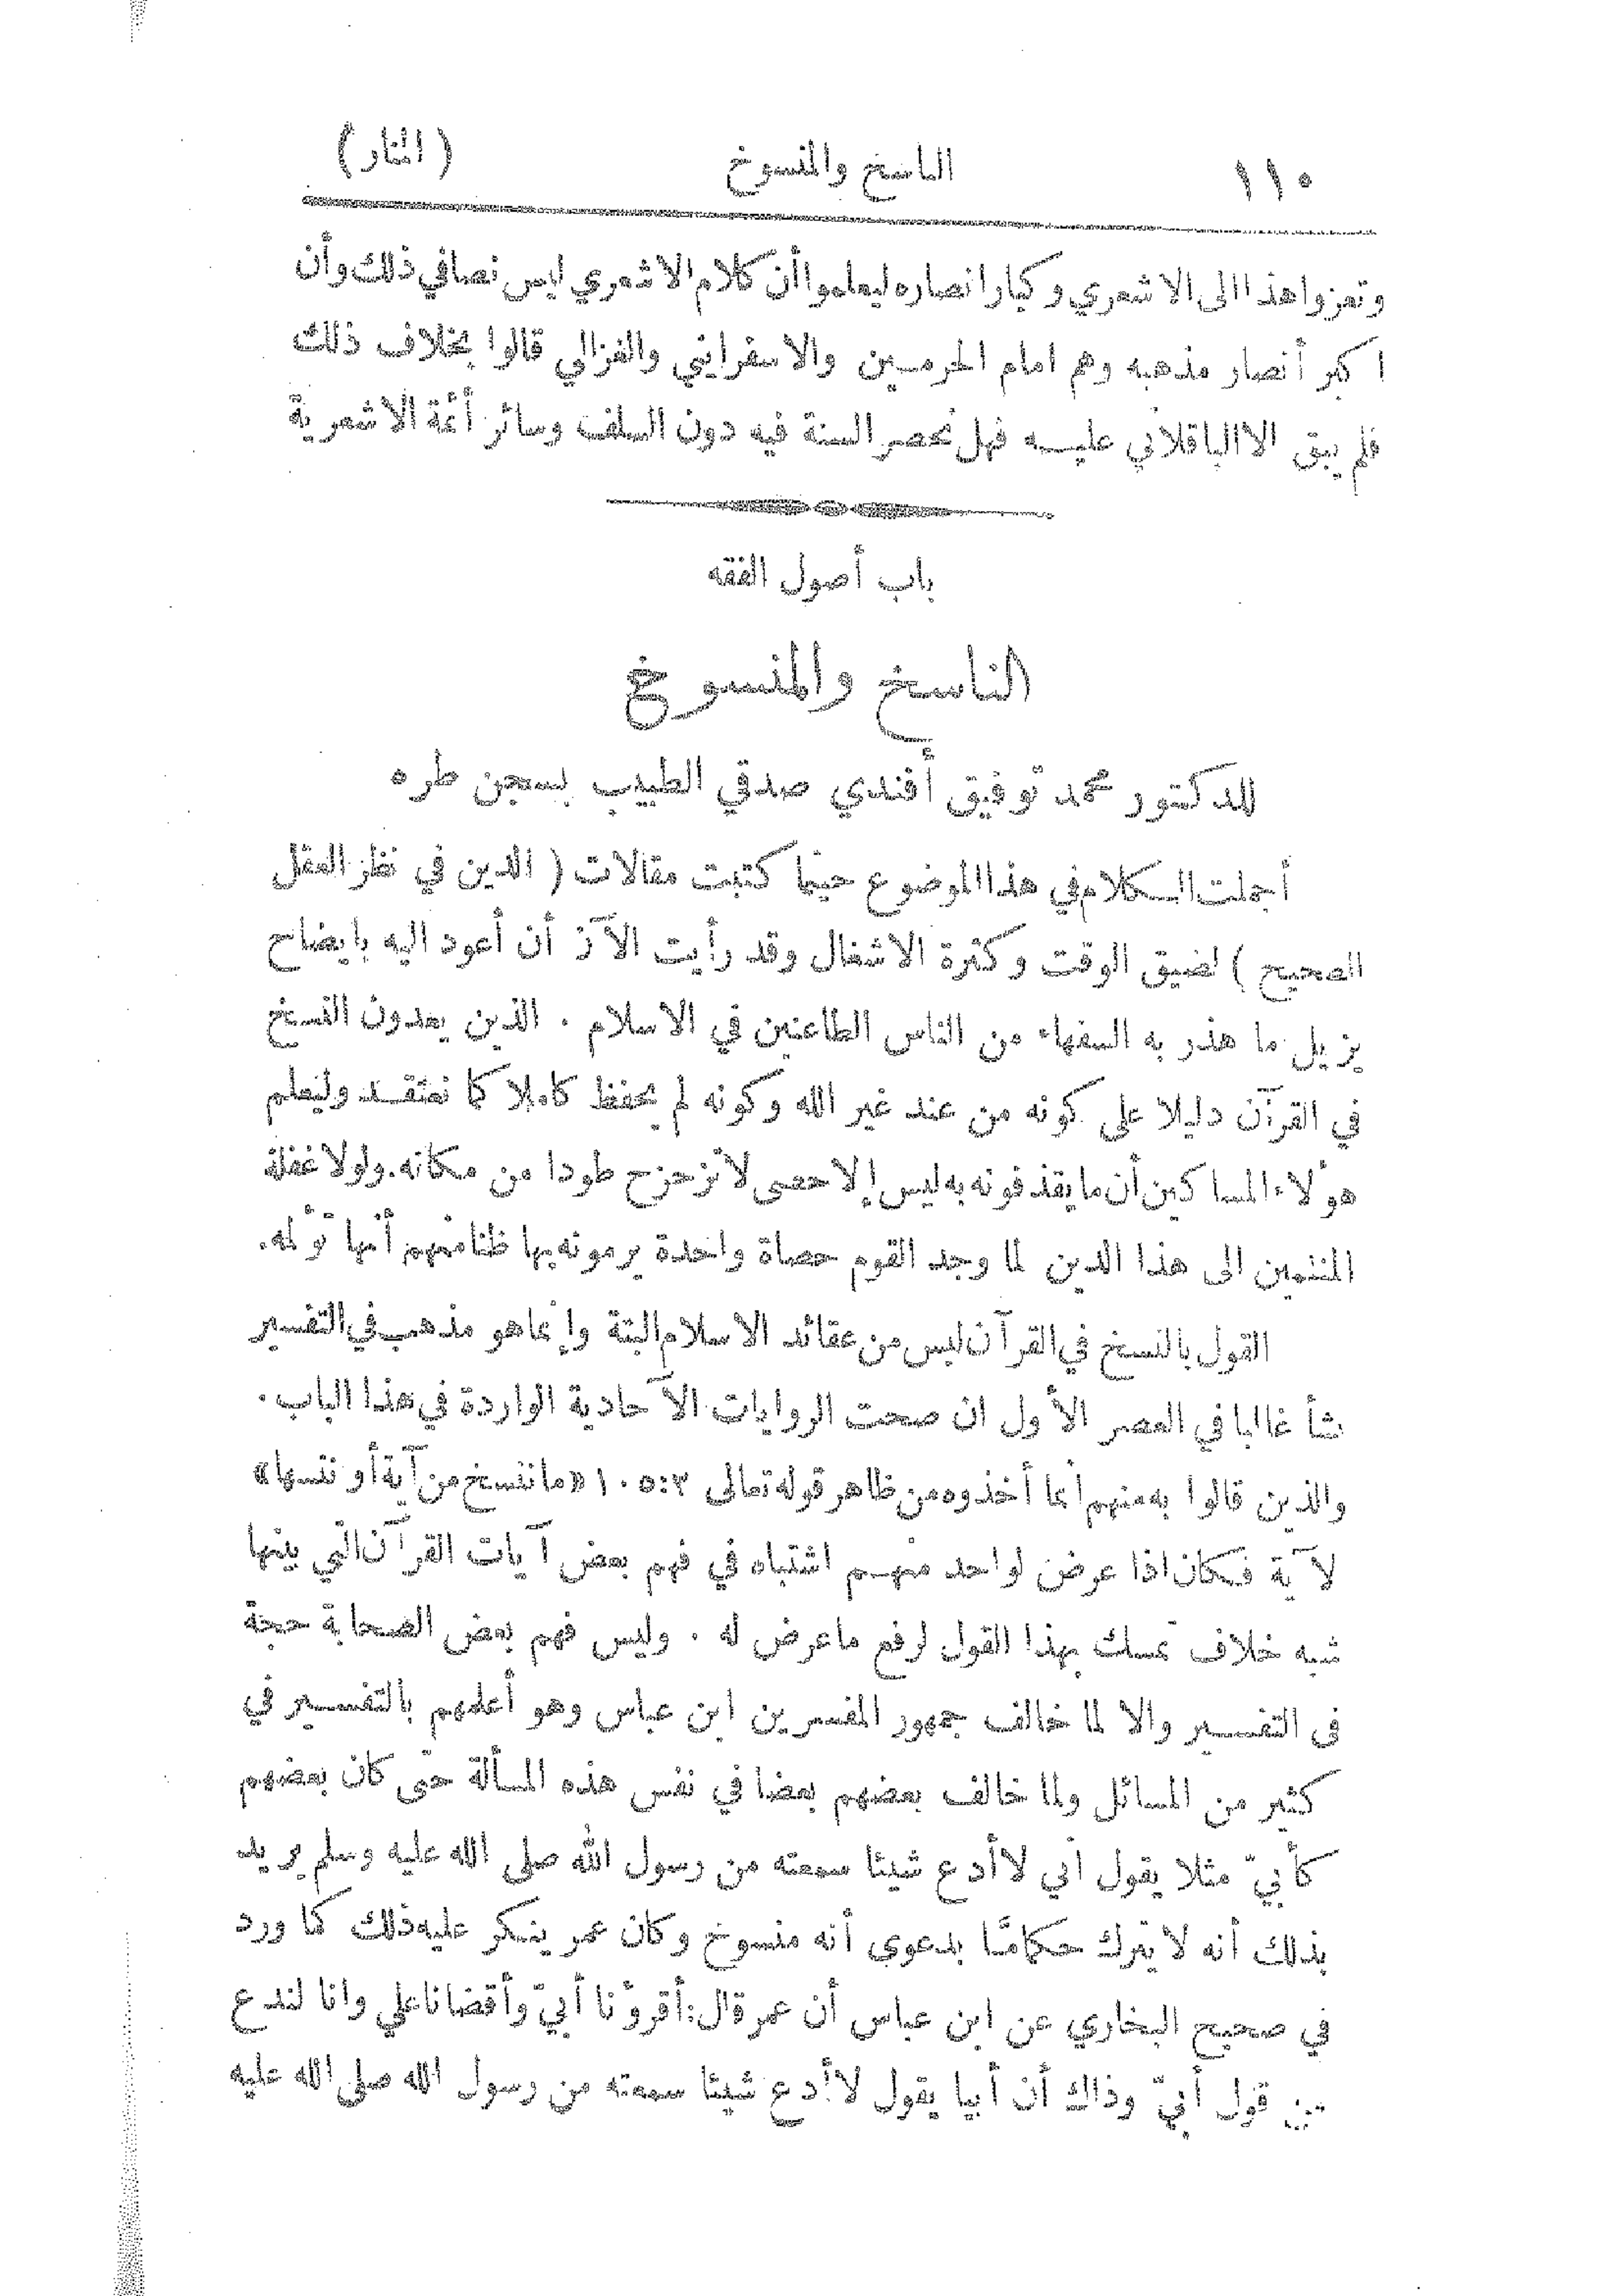 ١١٠ الناسخ والمنسوخ (المنار)
وتعزوا هذا الى الاشعري وكبار انصاره ليعلموا أن كلام الاشعري ليس نصا في ذلك وأن
اكبر أنصار مذهبه وهم امام الحرمين والاسفرايني والغزالي قالوا بخلاف ذلك
فلم يبق الا الباقلاني عليه فهل نحصر السنة فيه دون السلف وسائر أئمة الاشعرية
باب أصول الفقه
الناسخ والمنسوخ
للدكتور محمد توفيق أفندي صدقي الطبيب بسجن طره
أجملت الكلام في هذا الموضوع حينما كتبت مقالات ( الدين في نظر العقل
الصحيح ) لضيق الوقت وكثرة الاشغال وقد رأيت الآن أن أعود اليه بايضاح
يزيل ما هذر به السفهاء من الناس الطاعنين في الاسلام . الذين يعدون النسخ
في القرآن دليلا على كونه من عند غير الله وكونه لم يحفظ كاملا كما نعتقد وليعلم
هؤلاء المساكين أن ما يقذفونه به ليس إلا حصى لا تزحزح طودا من مكانه. ولولا غفلة
المنتمين الى هذا الدين لما وجد القوم حصاة واحدة يرمونه بها ظنا منهم أنها تؤلمه.
القول بالنسخ في القرآن ليس من عقائد الاسلام البتة وإنما هو مذهب في التفسير
نشأ غالبا في العصر الأول ان صحت الروايات الآحادية الواردة في هذا الباب.
والذين قالوا به منهم انما أخذوه من ظاهر قوله تعالى ١٠٥:٢ «ما ننسخ من آية أو ننسها»
لآية فكان اذا عرض لواحد منهم اشتباه في فهم بعض آيات القرآن التي بينها
شبه خلاف تمسك بهذا القول لرفع ما عرض له . وليس فهم بعض الصحابة حجة
فى التفسير والا لما خالف جمهور المفسرين ابن عباس وهو أعلمهم بالتفسير في
كثير من المسائل ولما خالف بعضهم بعضا في نفس هذه المسألة حتى كان بعضهم
كأبيّ مثلا يقول اني لا أدع شيئا سمعته من رسول الله صلى الله عليه وسلم يريد
بذلك أنه لا يترك حكما مّا بدعوى أنه منسوخ وكان عمر ينكر عليه ذلك كما ورد
في صحيح البخاري عن ابن عباس أن عمر قال: أقرؤنا أبيّ وأقضانا علي وانا لندع
من قول أبيّ وذاك أن أبيا يقول لا أدع شيئا سمعته من رسول الله صلى الله عليه